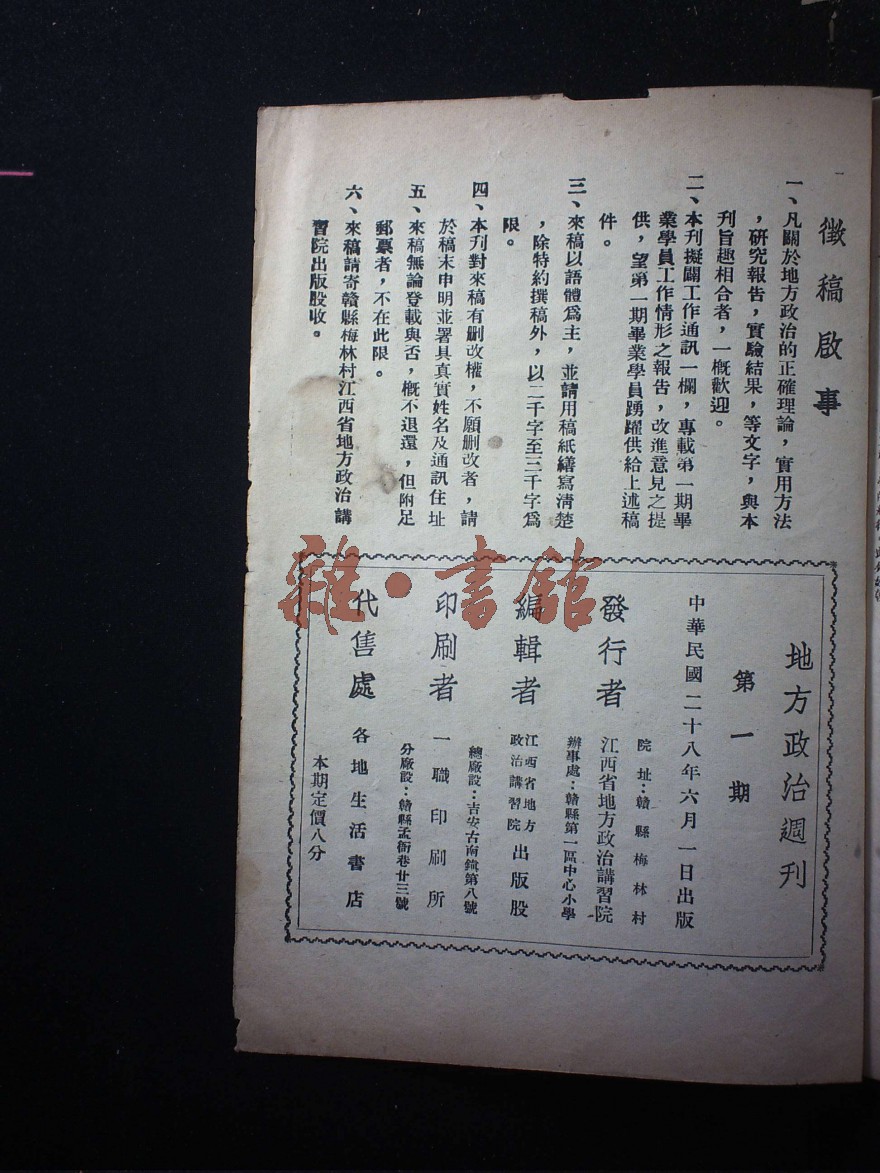 徵稿啟事
一、凡關於地方政治的正確理論，實用方法
，研究報告，實驗結果，等文字，與本
刊旨趣相合者，一概歡迎。
二、本刊擬闢工作通訊一欄，專載第一期畢
業學員工作情形之報告，改進意見之提
供，望第一期畢業學員踴躍供給上述稿
件。
三、來稿以語體爲主，並請用稿紙繕寫清楚
，除特約撰稿外，以二千字至三千字爲
限。
四、本刊對來稿有删改權，不願删改者，請
於稿末申明並署具真實姓名及通訊住址
五、來稿無論登載與否，概不退還，但附足
郵票者，不在此限。
六、來稿請寄贛縣梅林村江西省地方政治講
習院出版股收。
地方政治週刊
第一期
中華民國二十八年六月一日出版
發行者
院址：贛縣梅林村
江西省地方政治講習院
辦事處：贛縣第一區中心小學
編輯者
江西省地方
政治講習院
出版股
印刷者
總廠設：吉安古南鎮第八號
一職印刷所
分廠設：贛縣孟衙巷廿三號
代售處
各地生活書店
本期定價八分
雜·書館